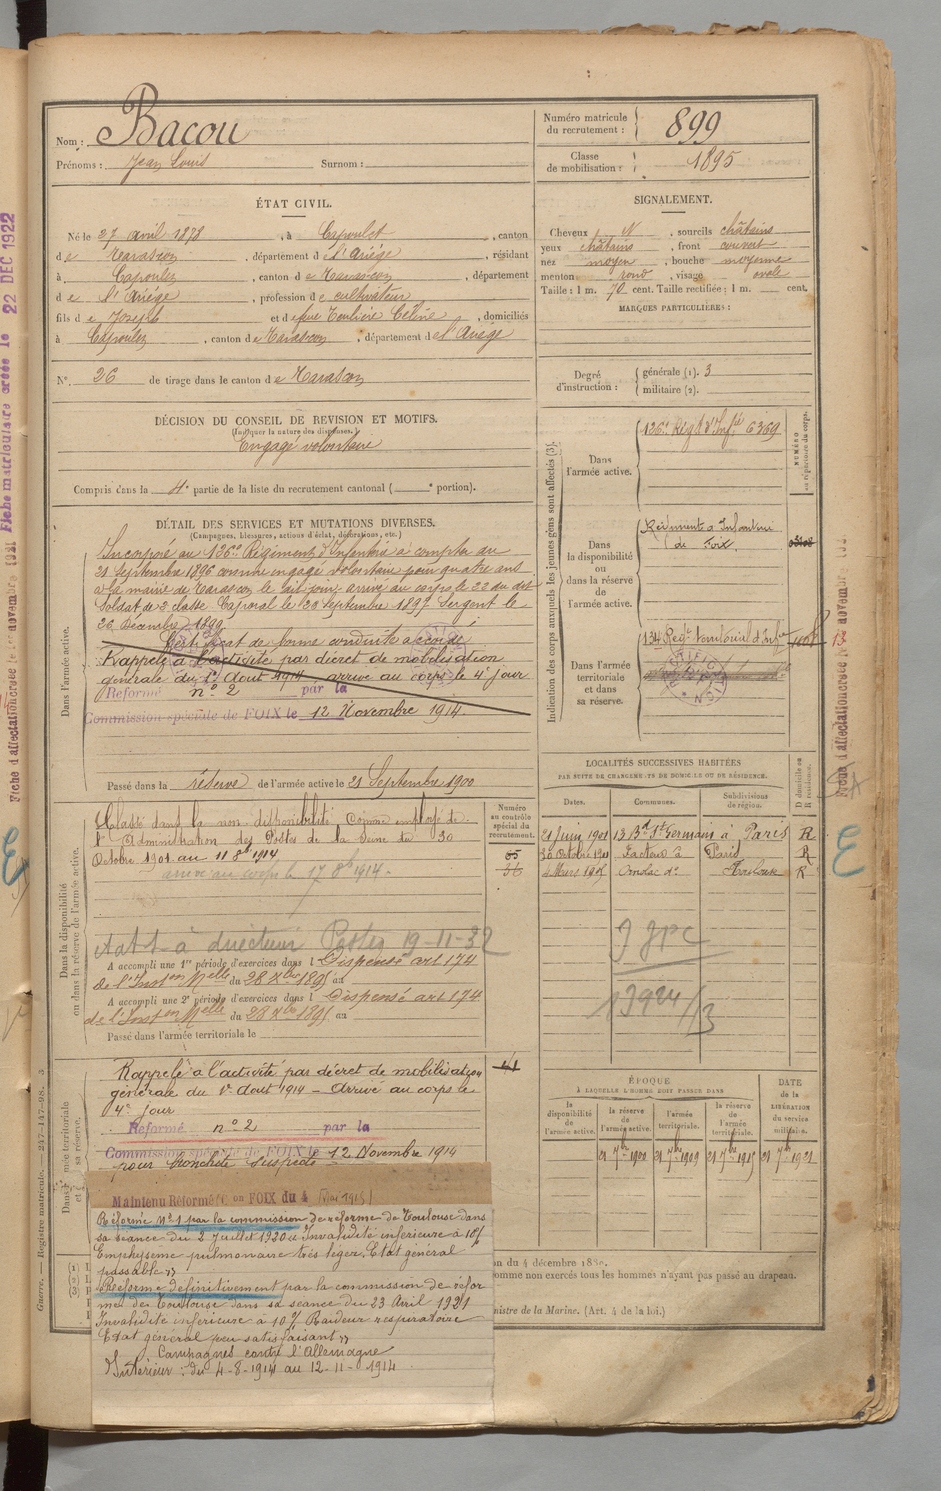 Nom : Bacou
Prénoms : Jean Louis Surnom :
Numéro matricule du recrutement : 899
Classe de mobilisation : 1895
ÉTAT CIVIL.
Né le 27 avril 1878, à Capoulet, canton
de Tarascon, département de l'Ariége, résidant
à Capoulet, canton de Tarascon, département
de l'Ariége, profession de cultivateur
fils de Joseph et de Céline, domiciliés
à Capoulet, canton de Tarascon, département de l'Ariége
N°. 26 de tirage dans le canton de Tarascon
SIGNALEMENT.
Cheveux N, sourcils châtains
yeux châtains, front couvert
nez moyen, bouche moyenne
menton rond, visage ovale
Taille : 1 m. 70 cent. Taille rectifiée : 1 m. cent.
MARQUES PARTICULIÈRES :
Degré d'instruction : générale (1). 3
militaire (2).
DÉCISION DU CONSEIL DE REVISION ET MOTIFS.
(Indiquer la nature des dispenses.)
Engagé volontaire
Compris dans la 4e partie de la liste du recrutement cantonal ( portion).
DÉTAIL DES SERVICES ET MUTATIONS DIVERSES.
(Campagnes, blessures, actions d'éclat, décorations, etc.)
Dans l'armée active.
Incorporé au 126e Régiment d'Infanterie à compter du
21 Septembre 1896 comme engagé volontaire pour quatre ans
à la mairie de Tarascon le dit jour, arrivé au corps le 22 du dit
Soldat de 2e classe Caporal le 20 septembre 1897 Sergent le
26 Décembre 1899.
Certificat de bonne conduite accordé
Rappelé à l'activité par décret de mobilisation
générale du 1er Aout 1914, arrivé au corps le 4e jour
Réformé n° 2 par la
Commission spéciale de FOIX le 12 Novembre 1914.
Passé dans la réserve de l'armée active le 21 Septembre 1900
Indication des corps auxquels les jeunes gens sont affectés (3).
NUMÉRO au répertoire du corps.
Dans l'armée active.
126e Régt d'Infie 6369
Dans la disponibilité ou dans la réserve de l'armée active.
Régiment d'Infanterie
de Foix.
Dans l'armée territoriale et dans sa réserve.
134 Régt territorial d'Infie
LOCALITÉS SUCCESSIVES HABITÉES
PAR SUITE DE CHANGEMENTS DE DOMICILE OU DE RÉSIDENCE.
Dates. Communes. Subdivisions de région. D domicile ou R résidence.
21 juin 1901 13 Bd St Germain à Paris R
30 Octobre 1901 Facteur à Paris R
4 Mars 1905 do Toulouse R
13924/13
Dans la disponibilité ou dans la réserve de l'armée active.
Numéro au contrôle spécial du recrutement.
Classé dans la non disponibilité comme employé de
l'Administration des Postes de la Seine du 30
Octobre 1901 au 11 8bre 1914
arrivé au corps le 17 8bre 1914.
à directeur Postes 19-11-32
A accompli une 1re période d'exercices dans l Dispensé art 174
de l'Inston Melle du 28 Xbre 1895 au
A accompli une 2e période d'exercices dans l Dispensé art 174
de l'Inston Melle du 28 Xbre 1895 au
Passé dans l'armée territoriale le
Rappelé à l'activité par décret de mobilisation
générale du 1er Aout 1914 – Arrivé au corps le
4e jour
Réformé n° 2 par la
Commission spéciale de FOIX le 12 Novembre 1914
pour bronchite suspecte
Maintenu Réformé Con FOIX du 4 Mai 1915
Réformé n°1 par la commission de réforme de Toulouse dans
sa séance du 2 Juillet 1920 Invalidité inférieure à 10%
Emphysème pulmonaire très léger. Etat général
passable »
Réformé définitivement par la commission de réfor
me de Toulouse dans sa séance du 23 Avril 1921
Invalidité inférieure à 10% Raideur respiratoire
Etat général peu satisfaisant »
Campagnes contre l'Allemagne
Intérieur : du 4-8-1914 au 12-11-1914
ÉPOQUE
À LAQUELLE L'HOMME DOIT PASSER DANS
la disponibilité de l'armée active. la réserve de l'armée active. l'armée territoriale. la réserve de l'armée territoriale.
DATE de la LIBÉRATION du service militaire.
21 7bre 1900 21 7bre 1909 21 7bre 1915 21 7bre 1921
du 4 décembre 1889.
omme non exercés tous les hommes n'ayant pas passé au drapeau.
nistre de la Marine. (Art. 4 de la loi.)
Guerre. — Registre matricule. — 247-147-98.
Fiche matriculaire créée le 22 DEC 1922